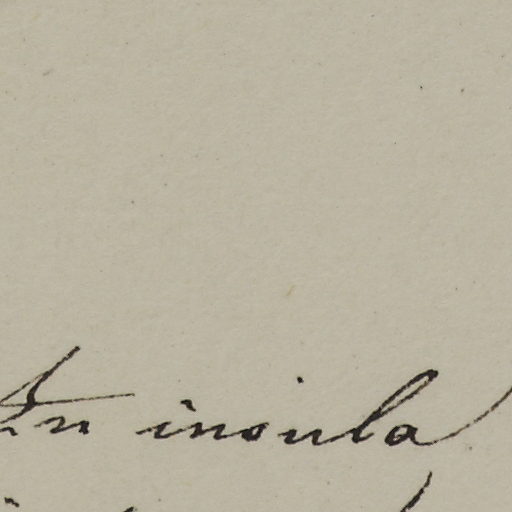 In insula